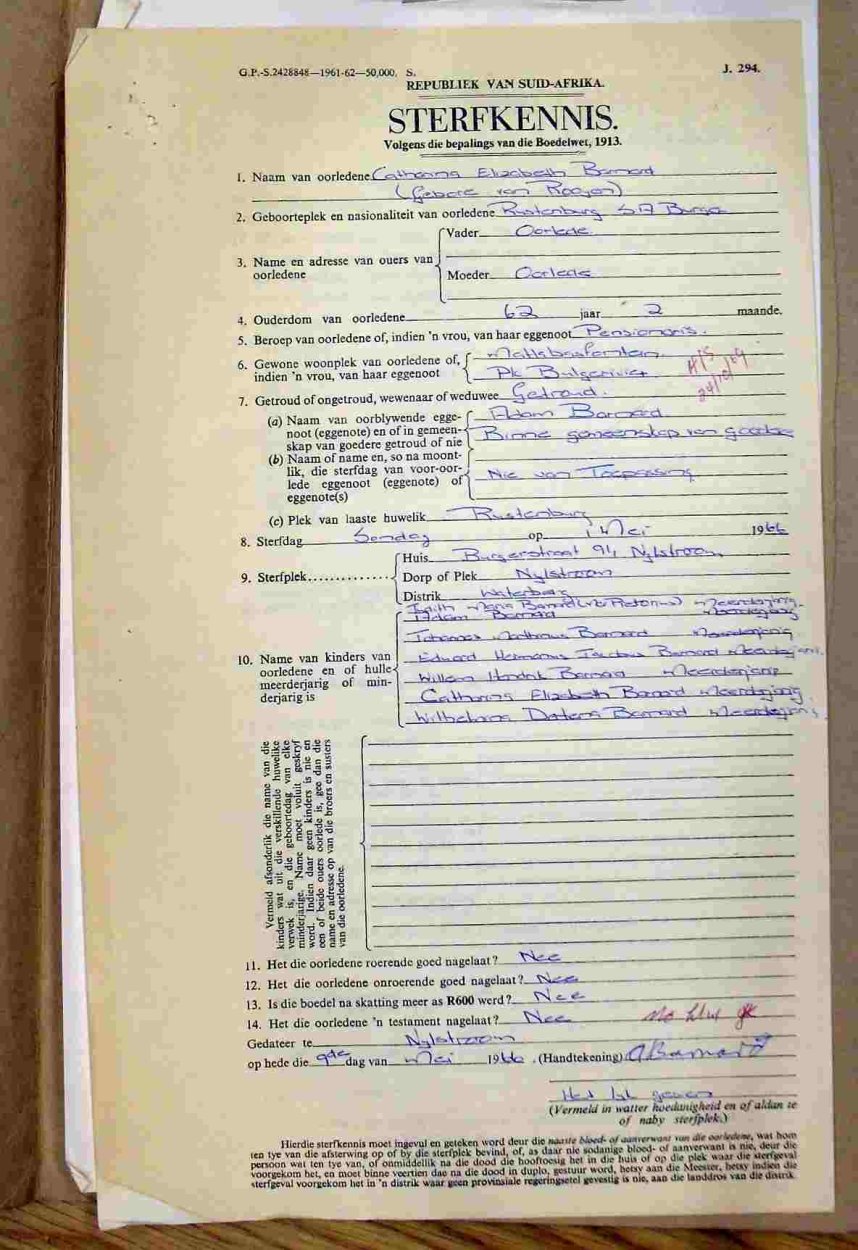 G.P.-S.2428848—1961-62—50,000. S.
J. 294.
REPUBLIEK VAN SUID-AFRIKA.
STERFKENNIS.
Volgens die bepalings van die Boedelwet, 1913.
1. Naam van oorledene Catharina Elizabeth Barnard
(Gebore van Rooyen)
2. Geboorteplek en nasionaliteit van oorledene Rustenburg SA Burger
3. Name en adresse van ouers van oorledene
Vader Oorlede
Moeder Oorlede
4. Ouderdom van oorledene 62 jaar 2 maande.
5. Beroep van oorledene of, indien 'n vrou, van haar eggenoot Pensionaris.
6. Gewone woonplek van oorledene of,
indien 'n vrou, van haar eggenoot
Pk Bulgerivier
24/10/69
7. Getroud of ongetroud, wewenaar of weduwee Getroud.
(a) Naam van oorblywende egge-
noot (eggenote) en of in gemeen-
skap van goedere getroud of nie
Adam Barnard
Binne gemeenskap van goedere
(b) Naam of name en, so na moont-
lik, die sterfdag van voor-oor-
lede eggenoot (eggenote) of
eggenote(s)
Nie van Toepassing
(c) Plek van laaste huwelik Rustenburg
8. Sterfdag Sondag op 1 Mei 1966
9. Sterfplek
Huis Burgerstraat 94 Nylstroom
Dorp of Plek Nylstroom
Distrik Waterberg
10. Name van kinders van
oorledene en of hulle
meerderjarig of min-
derjarig is
Maria Barnard Meerderjarig
Adam Barnard Meerderjarig
Johannes Barnard Meerderjarig
Eduard Hermanus Jacobus Barnard Meerderjarig
Willem Hendrik Barnard Meerderjarig
Catharina Elizabeth Barnard Meerderjarig
Barnard Meerderjarig
Vermeld afsonderlik die name van die
kinders wat uit die verskillende huwelike
verwek is, en die geboortedag van elke
minderjarige. Name moet voluit geskryf
word. Indien daar geen kinders is nie en
een of beide ouers oorlede is, gee dan die
name en adresse op van die broers en susters
van die oorledene.
11. Het die oorledene roerende goed nagelaat? Nee
12. Het die oorledene onroerende goed nagelaat? Nee
13. Is die boedel na skatting meer as R600 werd? Nee
14. Het die oorledene 'n testament nagelaat? Nee
Gedateer te Nylstroom
op hede die 9de dag van Mei 1966. (Handtekening) A Barnard
(Vermeld in watter hoedanigheid en of aldan te
of naby sterfplek.)
Hierdie sterfkennis moet ingevul en geteken word deur die naaste bloed- of aanverwant van die oorledene, wat hom
ten tye van die afsterwing op of by die sterfplek bevind, of, as daar nie sodanige bloed- of aanverwant is nie, deur die
persoon wat ten tye van, of onmiddellik na die dood die hooftoesig het in die huis of op die plek waar die sterfgeval
voorgekom het, en moet binne veertien dae na die dood in duplo, gestuur word, hetsy aan die Meester, hetsy indien die
sterfgeval voorgekom het in 'n distrik waar geen provinsiale regeringsetel gevestig is nie, aan die landdros van die distrik.